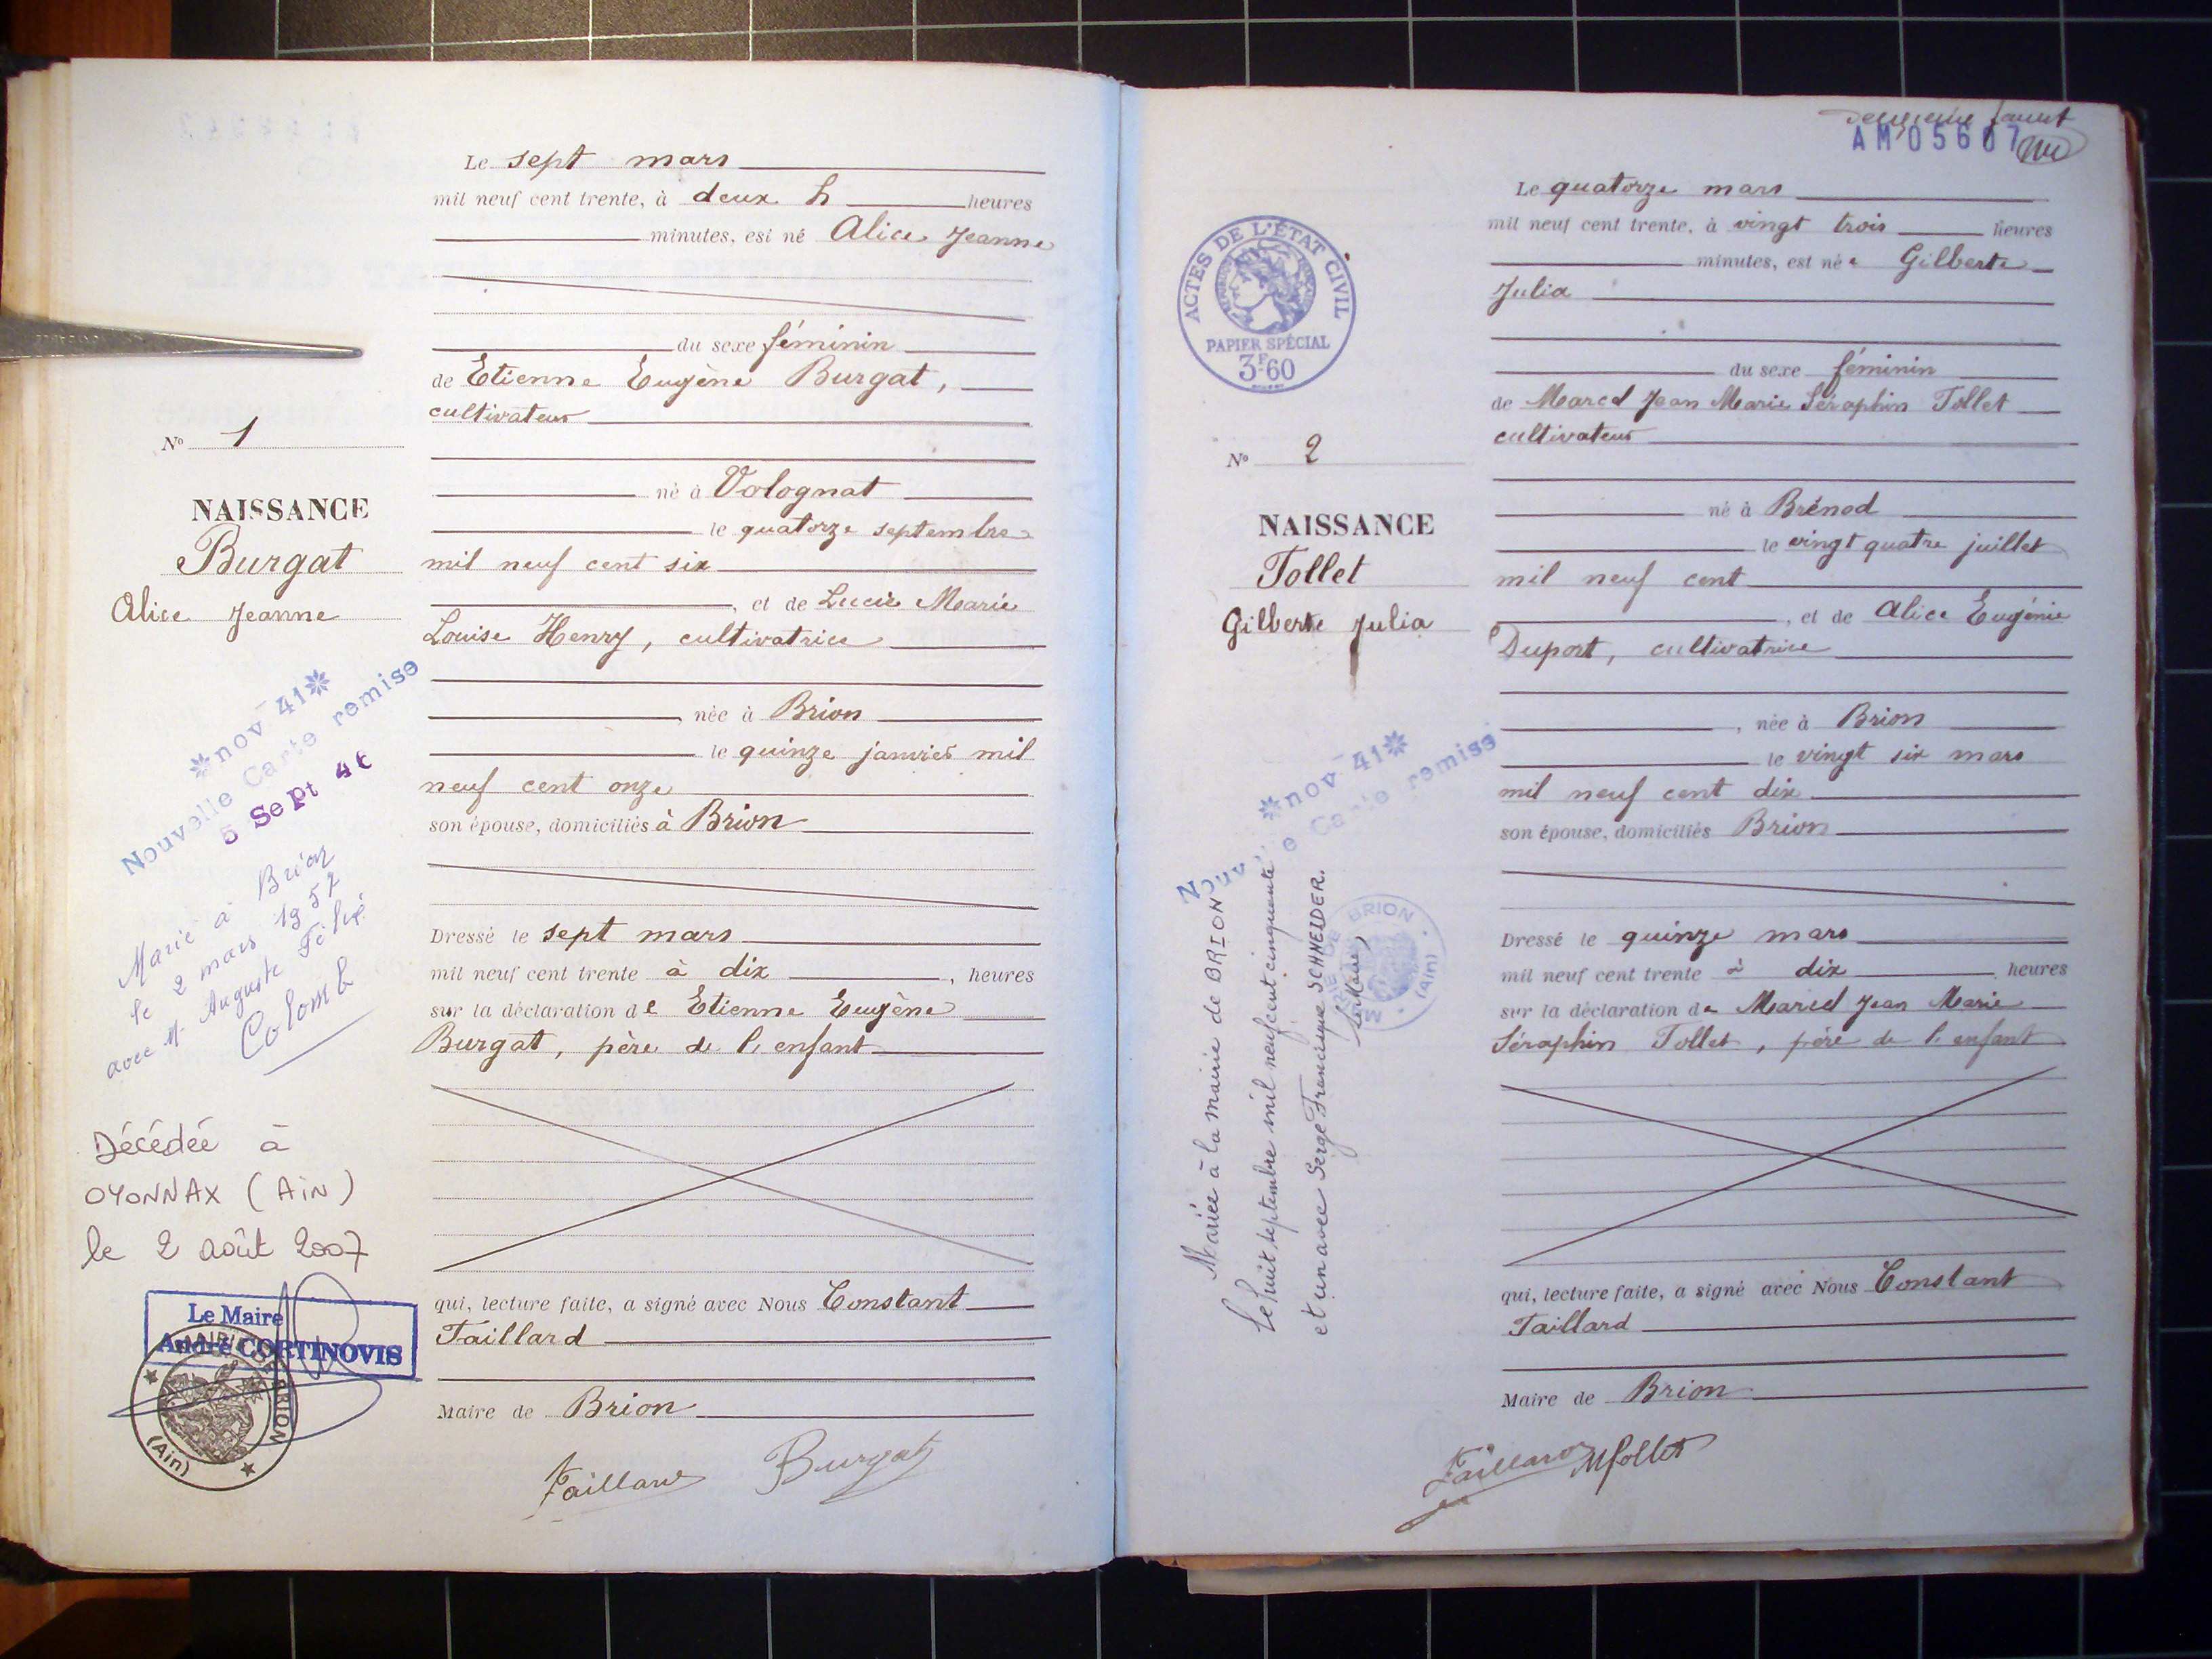 Le sept mars
mil neuf cent trente, à deux h heures
minutes, est né Alice Jeanne
du sexe féminin
de Etienne Eugène Burgat,
cultivateur
né à Volognat
le quatorze septembre
mil neuf cent six
, et de Lucie Marie
Louise Henry, cultivatrice
, née à Brion
le quinze janvier mil
neuf cent onze
son épouse, domiciliés à Brion
Dressé le sept mars
mil neuf cent trente à dix , heures
sur la déclaration de Etienne Eugène
Burgat, père de l'enfant
qui, lecture faite, a signé avec Nous Constant
Taillard
Maire de Brion
Taillard Burgat
No 1
NAISSANCE
Burgat
Alice Jeanne
nov 41
Nouvelle Carte remise
5 Sept 46
Marié à Brion
le 2 mars 1957
avec M. Auguste Félix
Colomb
Décédée à
OYONNAX (AiN)
le 2 août 2007
Le Maire
André CORTINOVIS
MAIRIE DE BRION
(Ain)
AM05607
Le quatorze mars
mil neuf cent trente, à vingt trois heures
minutes, est née Gilberte
Julia
du sexe féminin
de Marcel Jean Marie Séraphin Tollet
cultivateur
né à Brénod
le vingt quatre juillet
mil neuf cent
, et de Alice Eugénie
Duport, cultivatrice
, née à Brion
le vingt six mars
mil neuf cent dix
son épouse, domiciliés Brion
Dressé le quinze mars
mil neuf cent trente à dix heures
sur la déclaration de Marcel Jean Marie
Séraphin Tollet, père de l'enfant
qui, lecture faite, a signé avec Nous Constant
Taillard
Maire de Brion
Taillard MTollet
ACTES DE L'ÉTAT CIVIL
RÉPUBLIQUE FRANÇAISE
PAPIER SPÉCIAL
3F60
No 2
NAISSANCE
Tollet
Gilberte Julia
nov 41
Nouvelle Carte remise
Mariée à la mairie de BRION
le huit septembre mil neuf cent cinquante
et un avec Serge Francisque SCHNEIDER.
Le Maire,
MAIRIE DE BRION
(Ain)